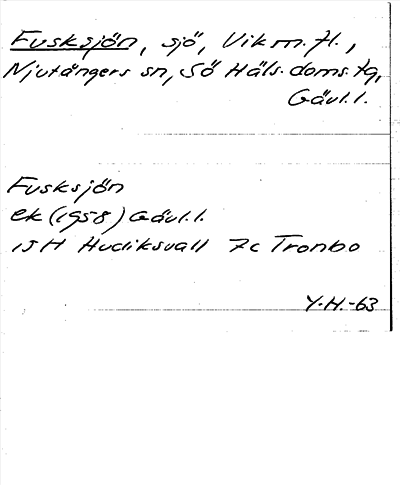 Fusksjön, sjö, Vik m. fl.,
Njutångers sn, Sö Häls. doms. tg,
Gävl. l.
Fusksjön
ek (1958) Gävl. l.
15H Hudiksvall 7c Tronbo
Y.H.-63